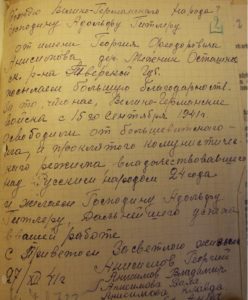 Вождю Велико-Германского народа
Господину Адольфу Гитлеру
от имени Георгия Феодоровича
Анисимова дер. Жданки Осташк
р-на Тверской Губ.
посылаем большую благодарность.
За то, что нас, Велико-Германские
войска с 15го Сентября 1941 г.
Освободили от большевитского
ига и проклятого коммунистиче
ского режима владычествовавшего
над Русским народом 24 года
и желаем Господину Адольфу
Гитлеру, дальнейшего успеха
в вашей работе
С Приветом За светлою жизнь
27/XII 41 г Анисимов Георгий
Анисимов Владимир
Анисимова
Анисимова